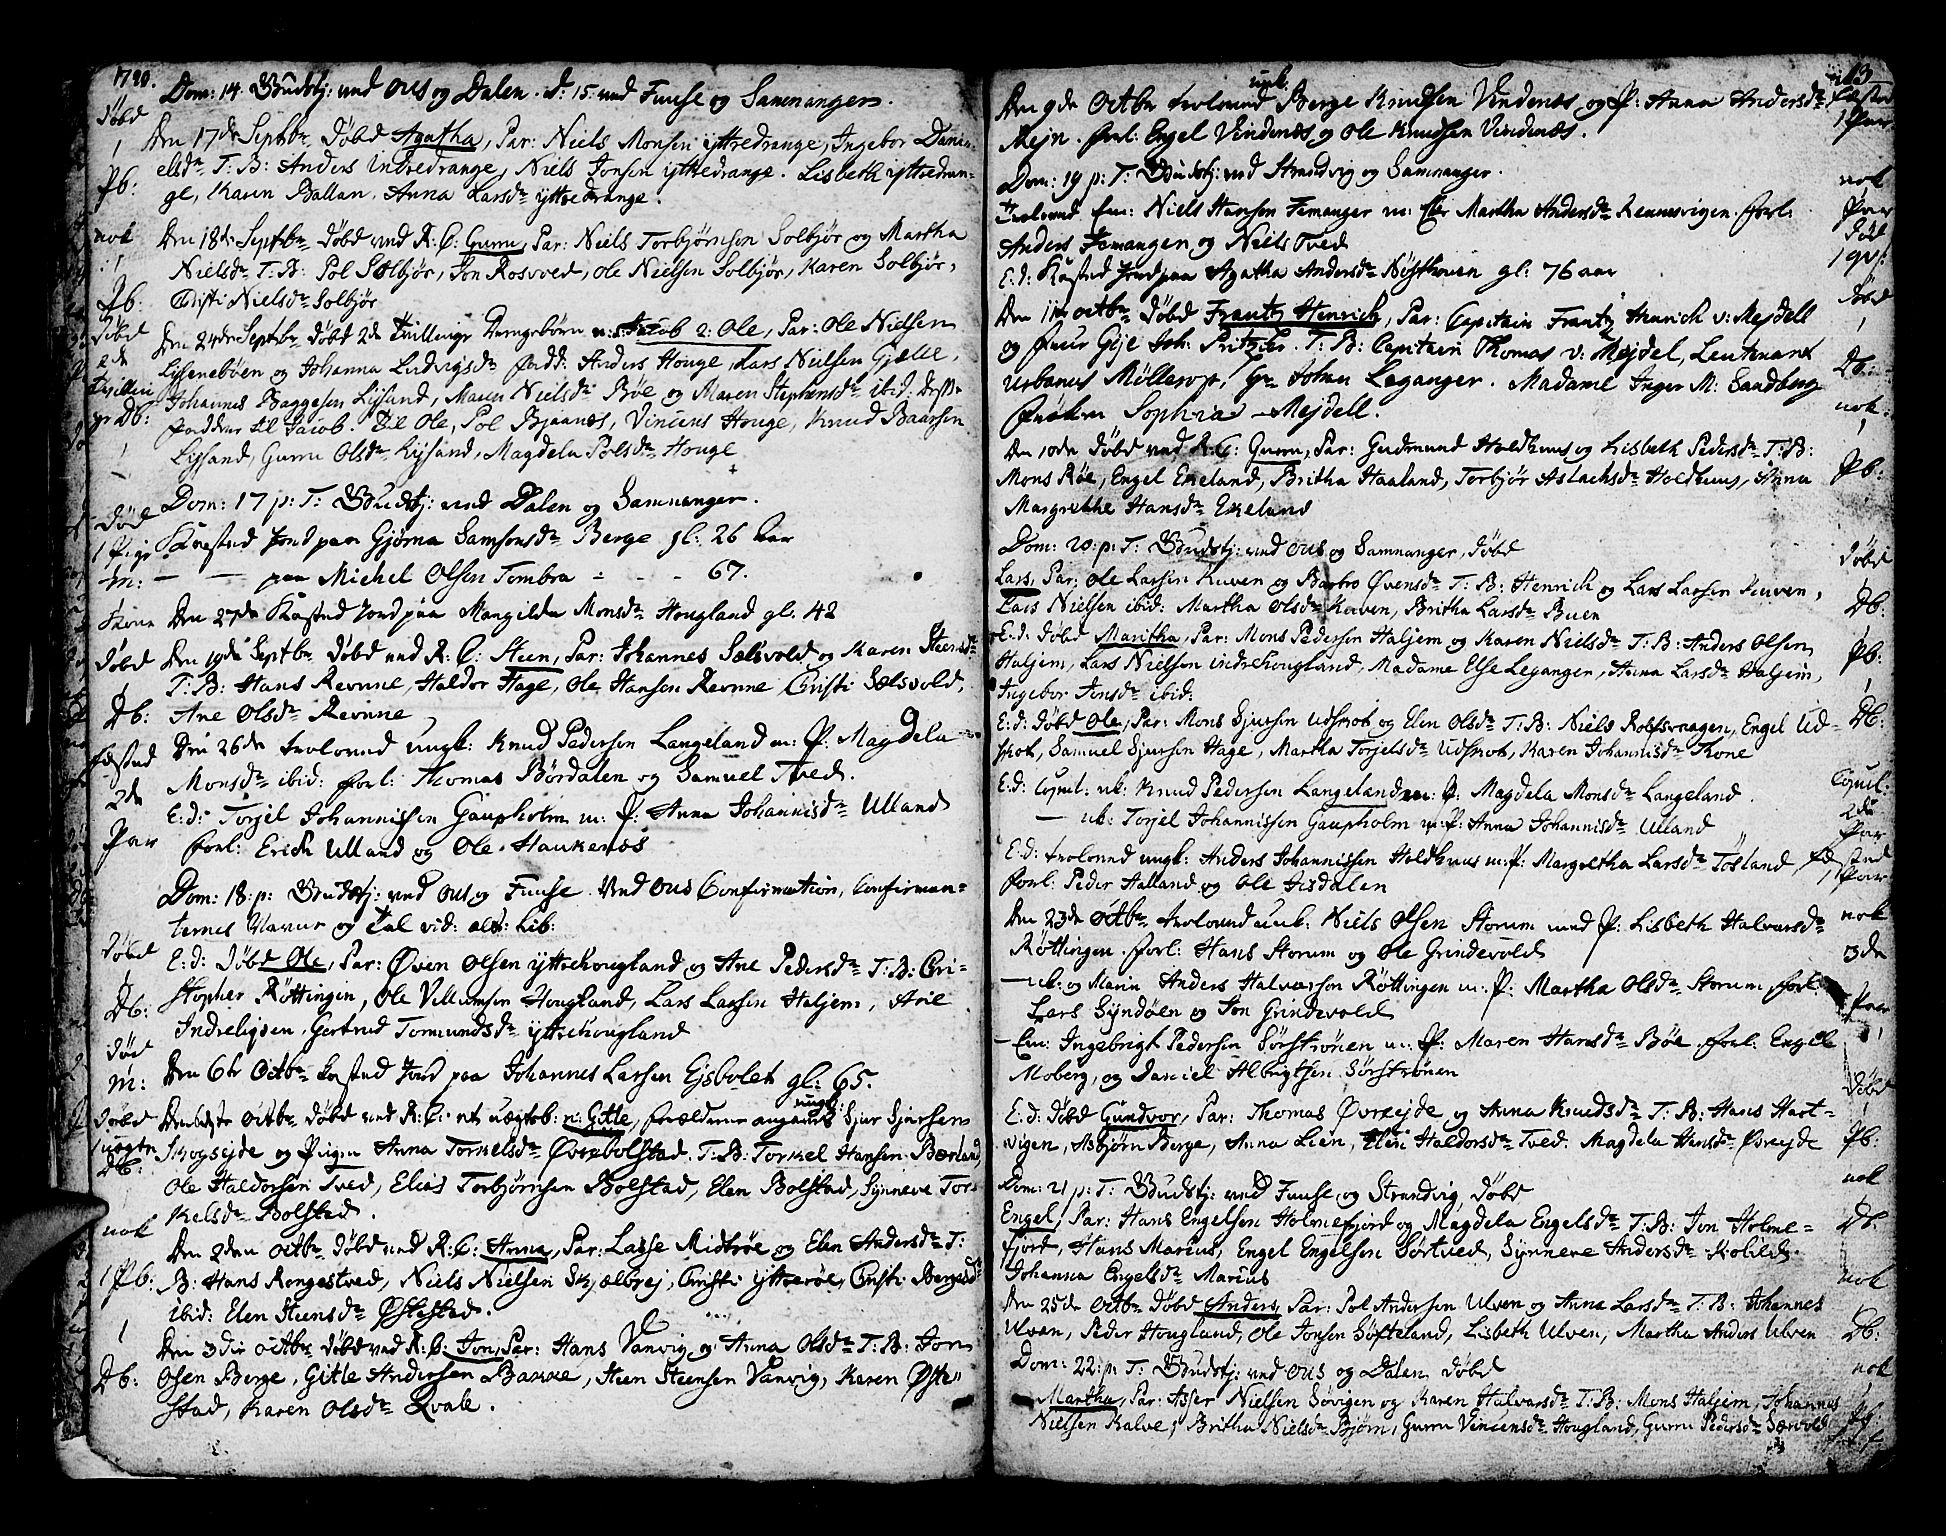 1780.
Dom: 14. Gudstj: ved Ous og Dalen. d: 15. ved Fuuse og Samnanger.
Døbd
Den 17de Septbr. Døbd Agatha, Par: Niels Monsen Yttredrange, Ingebor Dani-
1
elsdr. T: B: Anders Indredrange, Niels Jonsen Yttredrange. Lisbeth Yttredran-
Pb:
ge, Karen Ballan, Anna Larsdr. Yttredrange.
nok
Den 18de Septbr. Døbd ved K: C: Gurru, Par: Niels Torbjørnsen Solbjør og Martha
1
Nielsdr. T: B: Pol Solbjør, Jon Rosvved, Ole Nielsen Solbjør, Karen Solbjør,
Pb:
Christi Nielsdr. Solbjør
Døbd
Den 24de Septbr. Døbd 2de Tvillinge Drengebørn n: Jacob 2: Ole, Par: Ole Nielsen
2de
Lisenebøen og Johanna Ludvigsdr. Fadd: Anders Houge, Lars Nielsen Gjelle,
Tvillin
Johannes Baggesen Lysand, Maren Neilsdr. Bøe og Maren Stephensdr. ibid: disse
ge Db:
Faddere til Jacob. Til Ole, Pol Bjaanæs, Vincens Houge, Knud Baarsen
Lysand, Gurru Olsdr. Lysand, Magdela Polsdr. Houge
Dom: 17 p: T: Gudstj: ved Dalen og Samnanger.
Død
1 Pige
Kastud Jord paa Gjøma Samsonsdr. Berge gl: 26 Aar
m:
— — paa Michel Olsen Tombra - - - 67.
Kone
Den 27de Kastud Jord paa Mangilda Monsdr. Hougland gl: 42
Døbd
Den 19de Septbr. Døbd ved K: C: Steen, Par: Johannes Sælsvold og Karen Steensdr.
1
T: B: Hans Revnne, Haldor Hage, Ole Hansen Revnne, Christi Sælsvold,
Db:
Ane Olsdr. Revnne
Fæsted
Den 26de trolovud ungk: Knud Pedersen Langeland m: P: Magdela
2de
Monsdr. ibid: Forl: Thomas Børdalen og Samuel Tved.
E: d: Torjel Johannissen Gaupholm m: P: Anna Johannisdr. Ulland
Par
Forl: Erich Ulland og Ole Haukenæs
Dom: 18: p: Gudstj: ved Ous og Fuuse. Ved Ous Confirmation, Confirman-
ternes Navne og Tal vid: alt: Lib:
Døbd
E: d: Døbd Ole, Par: Øven Olsen Yttrehougland og Ane Pedersdr. T: B: Cri-
1
stopher Røttingen, Ole Villumsen Hougland, Lars Larsen Haljem, Arie
Db:
Indreligsen, Gertrud Tormundsdr. Yttrehougland
Død
m:
Den 6te Octbr. Kastud Jord paa Johannes Larsen Ejsbolet gl: 65.
Døbd
Octbr. Døbd ved K: C: et uægteb: n: Gitle, Forældrene angaves ungk: Sjur Sjursen
1 uægte
Skogsejde og Pigen Anna Torkelsdr. Øvrebolstad. T: B: Torkel Hansen Børland
Db:
Ole Haldorsen Tved, Elias Torbjørnsen Bolstad, Elen Bolstad, Synneve Tor-
kelsdr. Bolstad.
nok
Den 2den Octbr. Døbd ved K: C: Anna, Par: Lasse Midtrøe og Elen Andersdr. T:
1 Pb:
B: Hans Rongestved, Niels Nielsen Skjælbrej, Christi Ytterøe, Christi Bergesdr.
ibid: Elen Steensdr. Østestad.
1
Den 3die Octbr. Døbd ved K: C: Jon, Par: Hans Vanvig og Anna Olsdr. T: B: Jon
Db:
Osen Berge, Gitle Andersen Bakke, Steen Steensen Vanvig, Karen Øste-
stad, Karen Olsdr. Qvale.
13
Den 9de Octbr trolovud unk. Berge Knudsen Vindenæs og P: Anna Andersdr.
Fæsted
1 Par
Mejn. Forl: Engel Vindenæs og Ole Knudsen Vindenæs.
Dom: 19 p: T: Gudstj: ved Strandvig og Samnanger.
nok
Trolovud Em: Niels Hansen Femanger m: Martha Andersdr. Rennesvigen. Forl:
Par
Anders Femanger og Niels Tved
Død
E: d: Kasted Jord paa Agatha Andersdr. Nøsthouen gl: 76 aar
Den 11te Octbr. Døbd Frantz Henrich, Par: Capitain Frantz Henrich v: Mejdell
Døbd
1
og Fruer Gije Joh: Pritzier. T: B: Capitain Thomas v: Mejdel, Leutenant
Db:
Urbanus Möllerop, Hr. Johan Leganger. Madame Inger M: Sandberg
Frøken Sophia Mejdell.
nok
1
Den 10de Døbd ved K: C: Gurru, Par: Gudmund Holdhuus og Lisbeth Pedersdr. T: B:
Mons Røe, Engel Ekeland, Britha Haaland, Torbjør Aslachsdr. Holdhuus, Anna
Pb:
Margrethe Hansdr. Ekeland
Dom: 20: p: T: Gudstj: ved Ous og Samnanger, Døbd
Døbd
Lars, Par: Ole Larsen Kuven og Barbro Øvensdr. T: B: Henrich og Lars Larsen Kuven,
1
Lars Nielsen ibid: Martha Olsdr. Kuven, Britha Larsdr. Buen
Db:
E: d: Døbd Maritha, Par: Mons Pedersen Haljem og Karen Nielsdr. T: B: Anders Olsen
Haljem, Lars Nielsen Indrehougland, Madame Else Leganger, Anna Larsdr. Haljem,
Pb:
Ingebor Jonsdr. ibid:
1
E: d: Døbd Ole, Par: Mons Sjursen Udskot og Elen Olsdr. T: B: Niels Rolfsvaagen, Engel Ud-
Db:
skot, Samuel Sjursen Hage, Martha Torjelsdr. Udskot, Karen Johannisdr. Skone
E: d: Copul: uk: Knud Pedersen Langeland m: P: Magdela Monsdr. Langeland.
Copul:
— uk: Torjel Johannissen Gaupholm m: P: Anna Johannisdr. Ulland
2de
Par
E: d: trolovud ungk: Anders Johannissen Holdhuus m: P: Margretha Larsdr. Tøsland,
Fæsted
1 Par
Forl: Peder Halland og Ole Jexdalen
Den 23de Octbr. trolovud unk: Niels Olsen Storum med P: Lisbeth Halvarsdr.
nok
Røttingen. Forl: Hans Storum og Ole Grindevold
3de
— uk: og Marin Anders Halvarsen Røttingen m: P: Martha Olsdr. Storum, Forl:
Par
Lars Syndøen og Jon Grindevold
— Em: Ingebrigt Pedersen Sørstrønen m: P: Maren Hansdr. Bøe. Forl: Engel
Moberg, og Daniel Albrigtsen Sørstrønen
Døbd
E: d: Døbd Gundvor, Par: Thomas Øvrejde og Anna Knudsdr. T: B: Hans Hart-
1
vigen, Asbjørn Berge, Anna Lien, Eleni Haldorsdr. Tved. Magdela Hansdr. Øvrejde
Pb:
Dom: 21 p: T: Gudstj: ved Fuuse og Strandvig, Døbd
nok
Engel, Par: Hans Engelsen Holmefjord og Magdela Engelsdr. T: B: Jon Holme-
Db:
fjord, Hans Marius, Engel Engelsen Sørtved, Synneve Andersdr. Kolild.
Johanna Engelsdr. Marius
nok
Den 25de Octbr. Døbd Anders, Par: Pol Andersen Ulven og Anna Larsdr. T: B: Johannes
Ulven, Peder Hougland, Ole Jonsen Søfteland, Lisbeth Ulven, Martha Anders Ulven
Db:
Dom: 22: p: T: Gudstj: ved Ous og Dalen, Døbd
nok
Martha, Par: Asser Nielsen Søvigen og Karen Halvarsdr. T: B: Mons Haljem, Johannes
Nielsen Kalve, Britha Nielsdr. Bjørn, Gurru Vincensdr. Hougland, Gurru Pedersdr. Særvold
Pb: